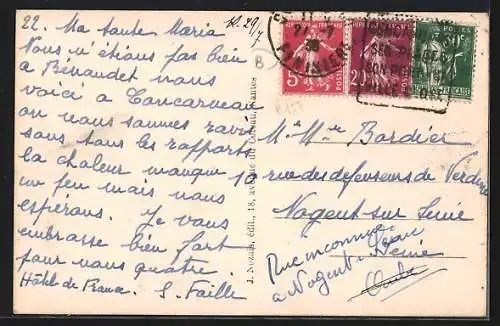 22. Ma tante Maria
Nous n'étions pas bien
à Bénodet nous
voici à Concarneau
ou nous sommes ravis
sous tous les rapports
la chaleur manque
un peu mais nous
esperons. Je vous
embrasse bien fort
pour vous quatre.
Hôtel de France S. Faille
29/7
8
J. Nozais, édit., 18, avenue du Nantes
5 POSTES
FINISTERE
M. Mme Bardier
10 rue des defenseurs de Verdun
Nogent-sur Seine
Rue inconnue
à Nogent Seine
Aube